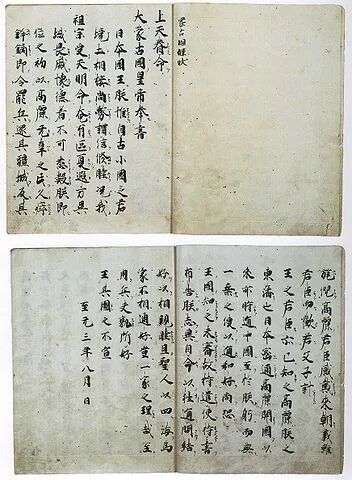 蒙古國牒狀
上天眷命
大蒙古國皇帝奉書
日本國王朕惟自古小國之君
境土相接尚務講信修睦況我
祖宗受天明命奄有區夏遐方異
域畏威懷德者不可悉數朕即
位之初以高麗无辜之民久瘁
鋒鏑即令罷兵還其疆域反其
旄倪高麗君臣感戴來朝義雖
君臣而歡若父子計
王之君臣亦已知之高麗朕之
東藩也日本密邇高麗開國以
來亦時通中國至於朕躬而無
一乘之使以通和好尚恐
王國知之未審故特遣使持書
布告朕志冀自今以往通問結
好以相親睦且聖人以四海為
家不相通好豈一家之理哉至
用兵夫孰所好
王其圖之不宣
至元三年八月日